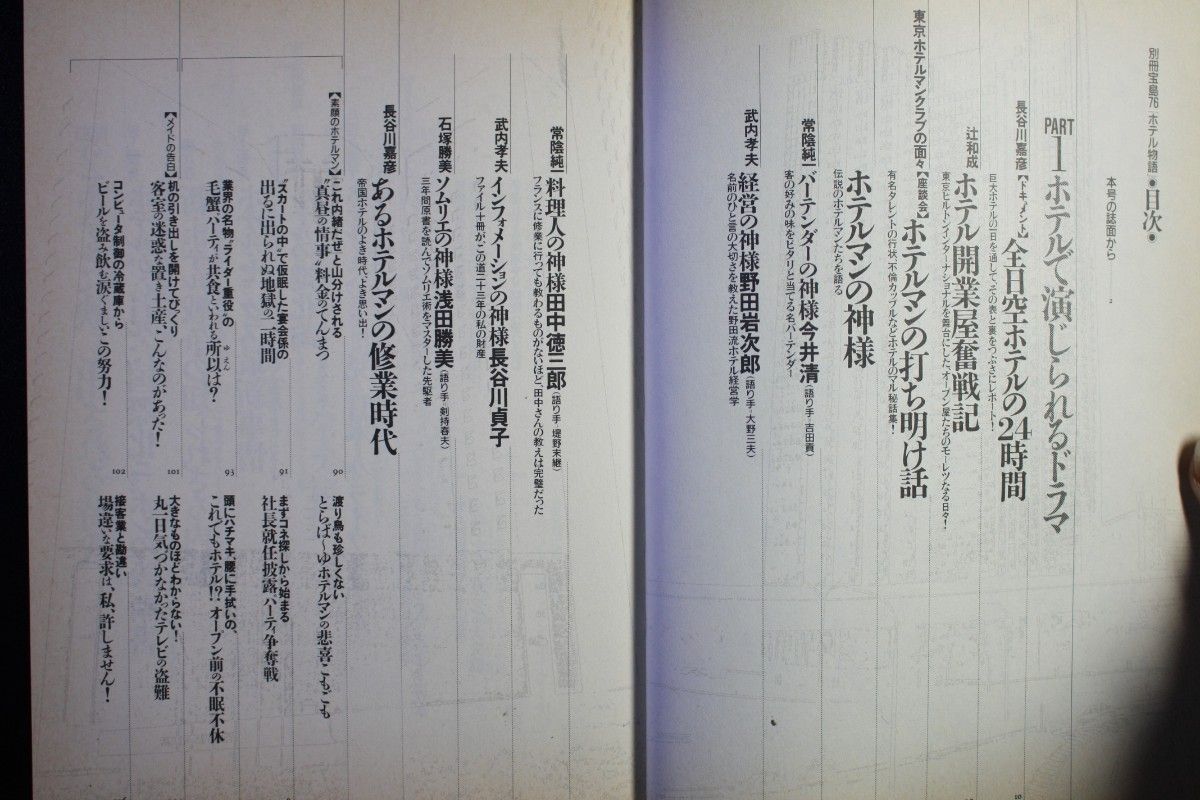 別冊宝島76 ホテル物語●目次●
本号の誌面から 2
PART 1 ホテルで演じられるドラマ
長谷川嘉彦【ドキュメント】全日空ホテルの24時間
巨大ホテルの一日を通して、その表と裏をつぶさにレポート!
辻和成 ホテル開業屋奮戦記
東京ヒルトンインターナショナルを舞台にした、オープン屋たちのモーレツなる日々!
東京ホテルマンクラブの面々【座談会】ホテルマンの打ち明け話
有名タレントの行状、不倫カップルなどホテルのマル秘話集!
ホテルマンの神様
伝説のホテルマンたちを語る
常陰純一 バーテンダーの神様 今井清(語り手・吉田貢)
客の好みの味をピタリと当てる名バーテンダー
武内孝夫 経営の神様 野田岩次郎(語り手・大野三夫)
名前のひと言の大切さを教えた野田流ホテル経営学
常陰純一 料理人の神様 田中徳三郎(語り手・堤野末継)
フランスに修業に行っても教わるものがないほど、田中さんの教えは完璧だった
武内孝夫 インフォメーションの神様 長谷川貞子
ファイル十冊が、この道二十三年の私の財産
石塚勝美 ソムリエの神様 浅田勝美(語り手・剣持春夫)
三年間原書を読んでソムリエ術をマスターした先駆者
長谷川嘉彦 あるホテルマンの修業時代
帝国ホテルのよき時代、よき思い出!
【素顔のホテルマン】
これ内緒だぜ、と山分けされる
"真昼の情事"料金のてんまつ 90
"スカートの中で仮眠した宴会係の
出るに出られぬ地獄の二時間 91
業界の名物"ライダー重役"の
毛蟹パーティが共食といわれる所以は? 93
ゆえん
【メイドの告白】
机の引き出しを開けてびっくり
客室の迷惑な置き土産、こんなのがあった! 101
コンピュータ制御の冷蔵庫から
ビールを盗み飲む、涙ぐましいこの努力! 102
渡り鳥も珍しくない
とらば〜ゆホテルマンの悲喜こもごも
まずコネ探しから始まる
社長就任披露パーティ争奪戦
頭にハチマキ、腰に手拭いの、
これでもホテル!? オープン前の不眠不休
大きなものほどわからない!
丸一日気づかなかったテレビの盗難
接客業と勘違い
場違いな要求は、私、許しません!
10